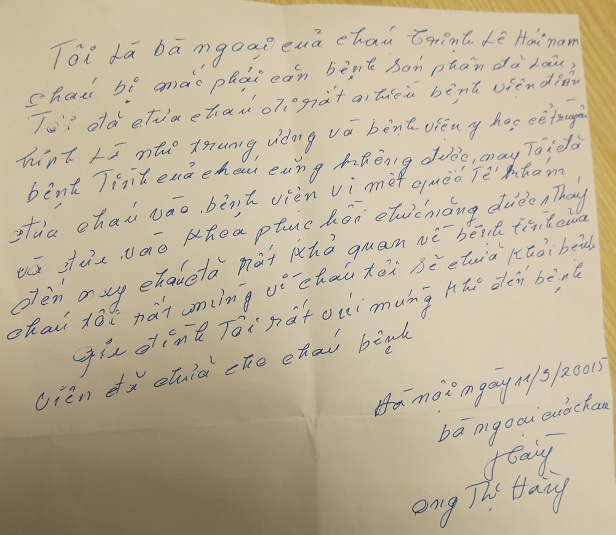 Tôi Là bà ngoại cuả cháu Trịnh Lê Hải nam
cháu bị mắc phải căn bệnh Son phân đã Lâu
Tôi đã đưa cháu đi rất nhiều bệnh viện điển
hình Là nhi trung ương và bệnh viện y học cổ truyền
bệnh Tình cuả cháu cũng không được, nay Tôi đã
đưa cháu vào bệnh viện vi mét quốc Tế khám
và đưa vào khoa phục hồi chức năng được 1 tháy
đến nay cháu đã rất khả quan về bệnh tình của
cháu tôi rất mừng vì cháu tôi sẽ chưã khỏi bệnh
gia đình Tôi rất vui mừng khi đến bệnh
viện đã chưã cho cháu bệnh
Hà nội ngày 11/3/20015
bà ngoại cuả cháu
Hằng
ong Thị Hằng